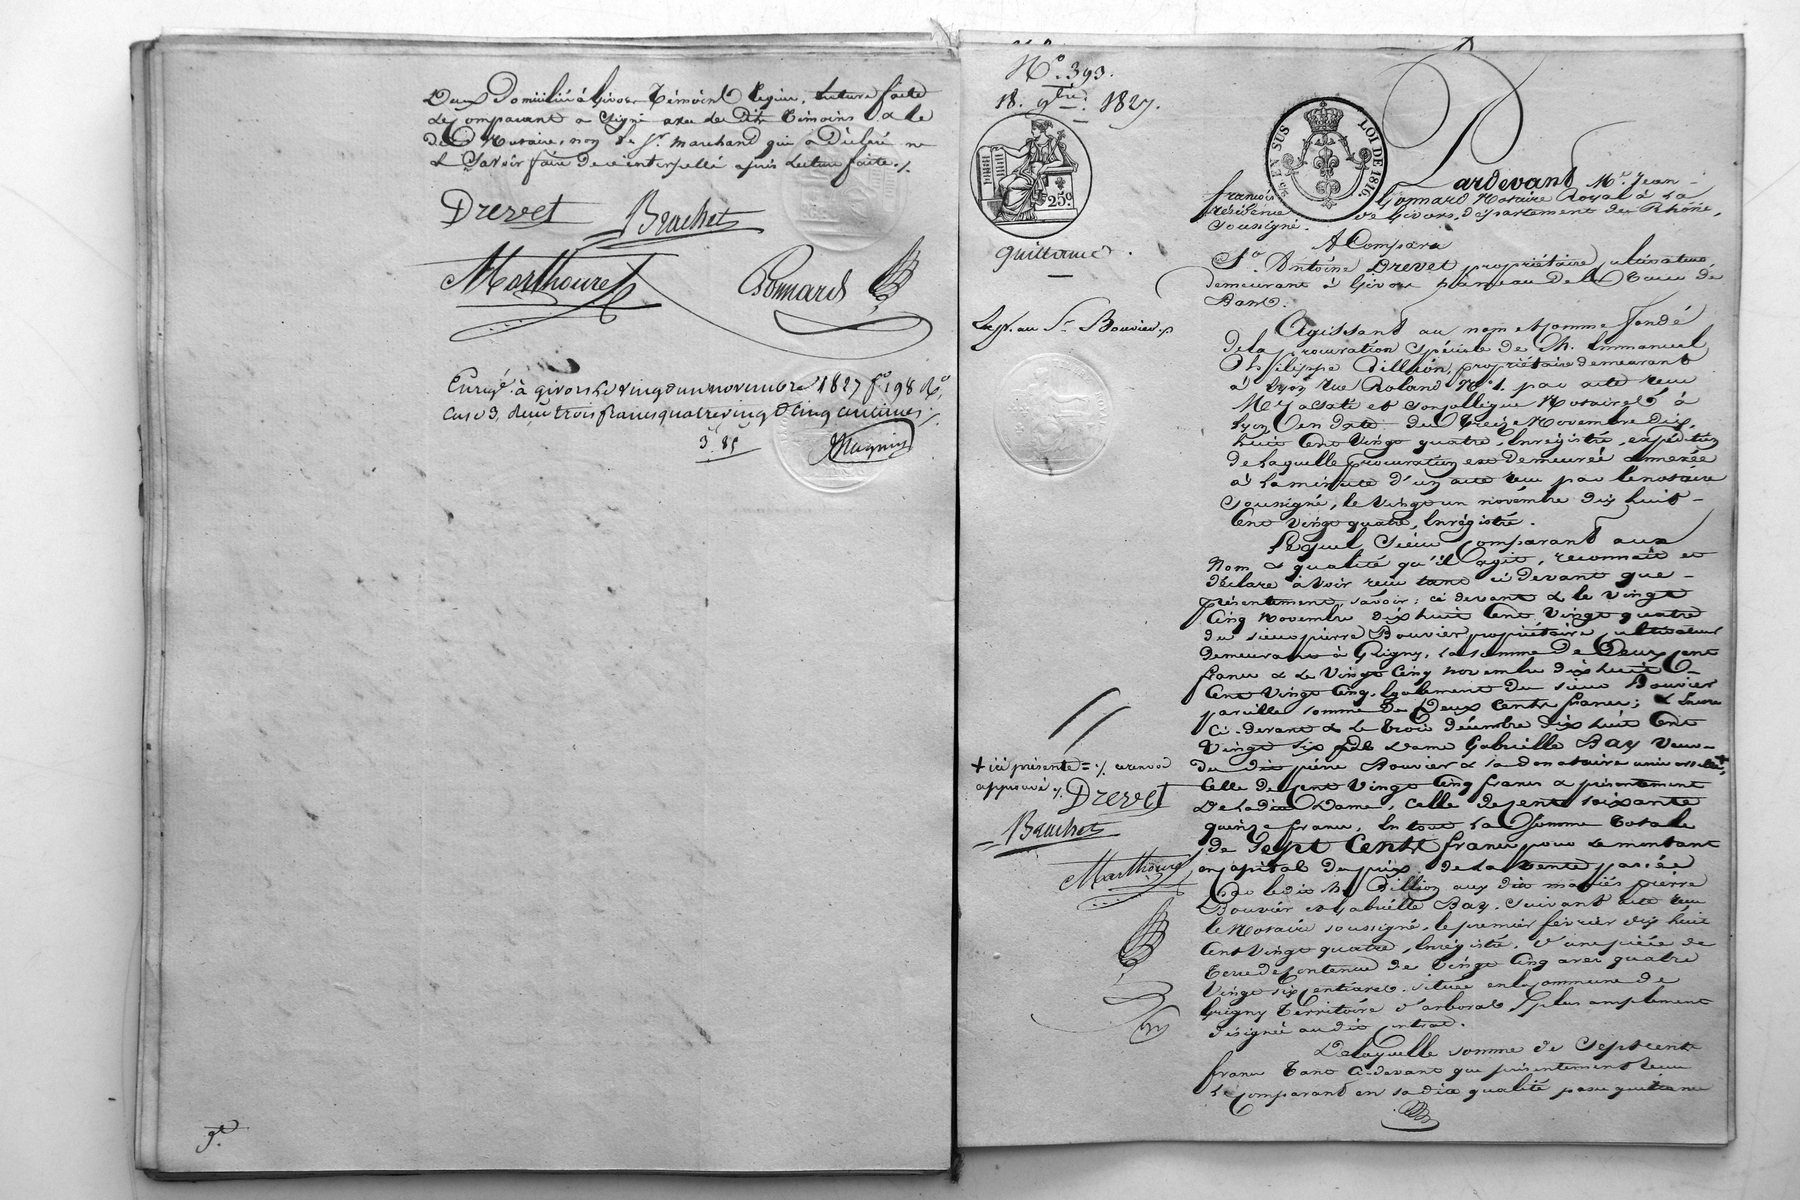 Deux Domiciliés à Givors Témoins requis, Lecture faite
Le Comparant a signé avec les Dits Témoins & le
dit Notaire, non le Sr. Marchand qui a Déclaré ne
le savoir faire de ce interpellé après Lecture faite ./.
Drevet Brachet
Marthouret Gonnard
Enregé à givors le vingt un novembre 1827 fo. 198 Ro.
Case 3, reçu trois francs quatre vingt cinq centimes ./.
3. 85
9e.
No. 393.
18. 9bre. 1827.
25c.
Quittance.
Exp. au Sr. Bouvier
EN SUS LOI DE 1816.
Pardevant Me. Jean-
françois Gonnard Notaire Royal à la
résidence de Givors, département du Rhône,
soussigné.
A Comparu
Sr. Antoine Drevet propriétaire cultivateur,
demeurant à Givors hameau de la Tour de
Bans.
Agissant au nom et comme fondé
de la procuration spéciale de Mr. Emmanuel
Philippe Dillion, propriétaire demeurant
à Lyon rue Roland No. 1. par acte reçu
Me et son collègue Notaires à
Lyon en date du treize Novembre dix
huit Cent vingt quatre, Enregistré, expédition
de laquelle procuration est demeurée annexée
à la minute d'un acte reçu par le notaire
soussigné, le vingt un novembre dix huit
Cent vingt quatre, Enregistré.
Lequel sieur Comparant aux
Nom & qualité qu'il agit, reconnait et
déclare avoir reçu tant ci devant que
présentement, savoir : ci devant & le vingt
Cinq Novembre dix huit Cent vingt quatre
du sieur pierre Bouvier propriétaire cultivateur
demeurant à Grigny, la somme de Deux Cent
francs & le vingt Cinq novembre dix huit
Cent vingt Cinq, Egalement du sieur Bouvier
pareille somme de Deux Cents francs ; & Encore
Ci-devant & le trois décembre dix huit Cent
vingt six de Dame Gabrielle Bay Veuve
du dit pierre Bouvier & sa donataire universelle +
Celle de Cent vingt Cinq francs & présentement
de la dite Dame, Celle de Cent soixante
quinze francs, En tout la Somme totale
de Sept Cents francs pour le montant
en Capital du prix de la vente passée
par le dit Mr. Dillion aux dits mariés pierre
Bouvier et Gabrielle Bay, suivant acte reçu
le Notaire soussigné, le premier février dix huit
Cent vingt quatre, Enregistré, d'une pièce de
terre de contenue de vingt Cinq ares quatre
vingt six Centiares, située en la commune de
Grigny territoire d'arboras, plus amplement
désignée au dit Contrat.
De laquelle somme de Sept cents
francs tant Ci-devant que présentement reçue
le Comparant en sa dite qualité passe quittance
+ ici présente = ./. ce renvoi
approuvé ./. Drevet
Brachet
Marthouret